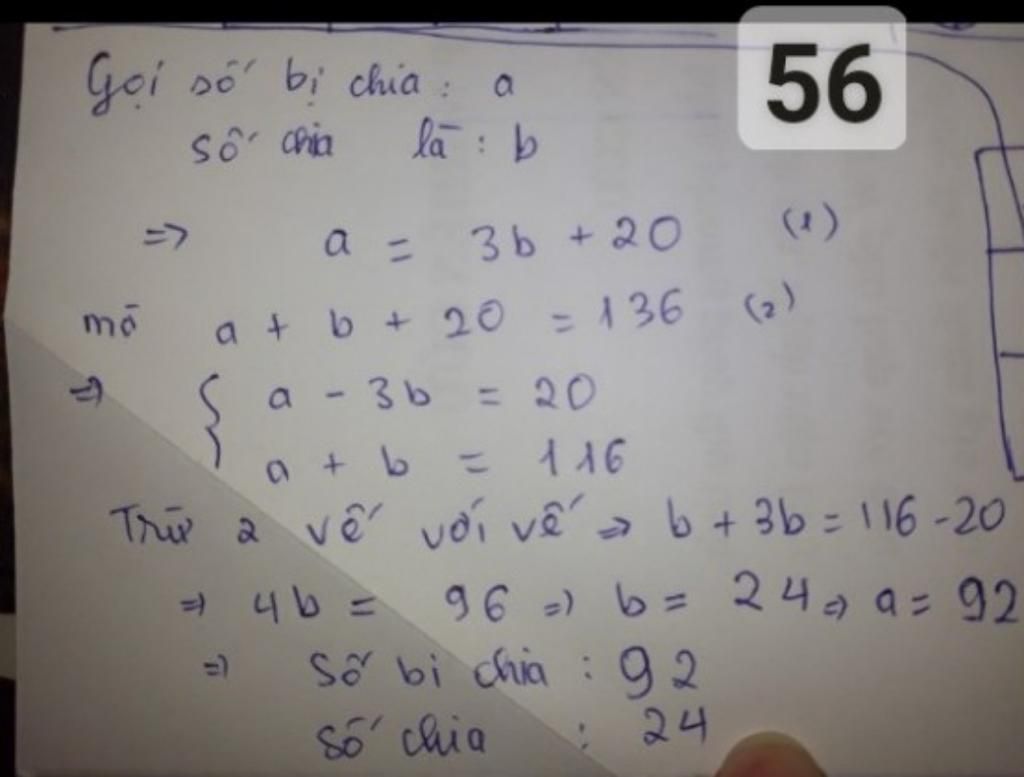 56
Gọi số bị chia : a
số chia là : b
=> a = 3b + 20 (1)
mà a + b + 20 = 136 (2)
=> { a - 3b = 20
a + b = 116
Trừ 2 vế với vế => b + 3b = 116 - 20
=> 4b = 96 => b = 24 => a = 92
=> Số bị chia : 92
Số chia : 24